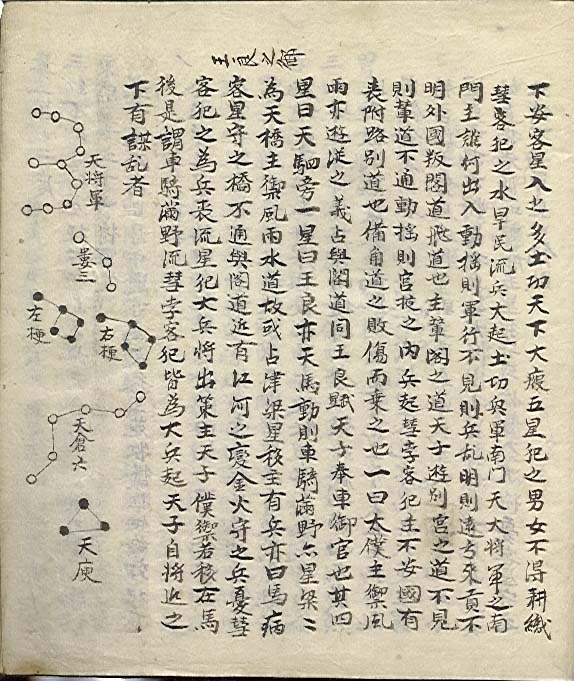 王良之御
下安客星入之多土功天下大瘦五星犯之男女不得耕織
彗客犯之水旱民流兵大起土功與軍南门天大將軍之南
門主誰何出入動摇則軍行不見則兵乱明則遠方來貢不
明外國叛閣道飛道也主輦閣之道天子遊别宫之道不見
則輦道不通動摇則宫掖之内兵起彗孛客犯主不安國有
丧附路别道也備甬道之敗傷而乗之也一曰太僕主禦風
雨亦遊従之義占與閣道同王良五星天子奉車御官也其四
星曰天駟旁一星曰王良亦天馬動則車騎滿野亦星梁二
為天橋主禦風雨水道故或占津梁星移主有兵亦曰馬病
客星守之橋不通與閣道近有江河之憂金火守之兵憂彗
客犯之為兵丧流星犯大兵將出策主天子僕禦若移在馬
後是謂車騎滿野流彗孛客犯皆為大兵起天子自將近之
下有謀乱者
天將軍
婁三
右梗
左梗
天倉六
天庾